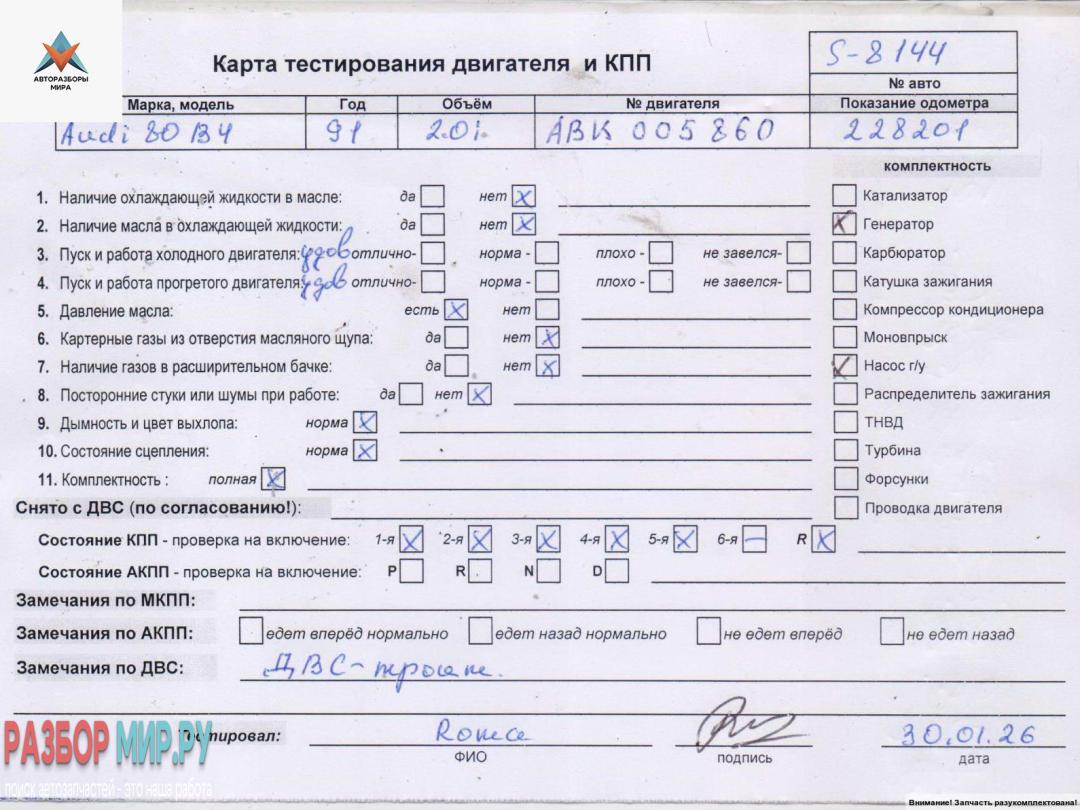 АВТОРАЗБОРЫ
МИРА
Карта тестирования двигателя и КПП
S-8144
№ авто
Марка, модель Год Объём № двигателя Показание одометра
Audi 80 B4 91 2.0i. ABK 005860 228201
комплектность
1. Наличие охлаждающей жидкости в масле: да нет X Катализатор
2. Наличие масла в охлаждающей жидкости: да нет X X Генератор
3. Пуск и работа холодного двигателя: удов отлично- норма - плохо - не завелся- Карбюратор
4. Пуск и работа прогретого двигателя: удов отлично- норма - плохо - не завелся- Катушка зажигания
5. Давление масла: есть X нет Компрессор кондиционера
6. Картерные газы из отверстия масляного щупа: да нет X Моновпрыск
7. Наличие газов в расширительном бачке: да нет X Насос г/у
8. Посторонние стуки или шумы при работе: да нет X Распределитель зажигания
9. Дымность и цвет выхлопа: норма X ТНВД
10. Состояние сцепления: норма X Турбина
11. Комплектность : полная X Форсунки
Снято с ДВС (по согласованию!): Проводка двигателя
Состояние КПП - проверка на включение: 1-я X 2-я X 3-я X 4-я X 5-я X 6-я — R X
Состояние АКПП - проверка на включение: P R N D
Замечания по МКПП:
Замечания по АКПП: едет вперёд нормально едет назад нормально не едет вперёд не едет назад
Замечания по ДВС: ДВС-троит.
РАЗБОР МИР.РУ
Тестировал: Roma 30.01.26
ФИО подпись дата
поиск автозапчастей - это наша работа
Внимание! Запчасть разукомплектована!